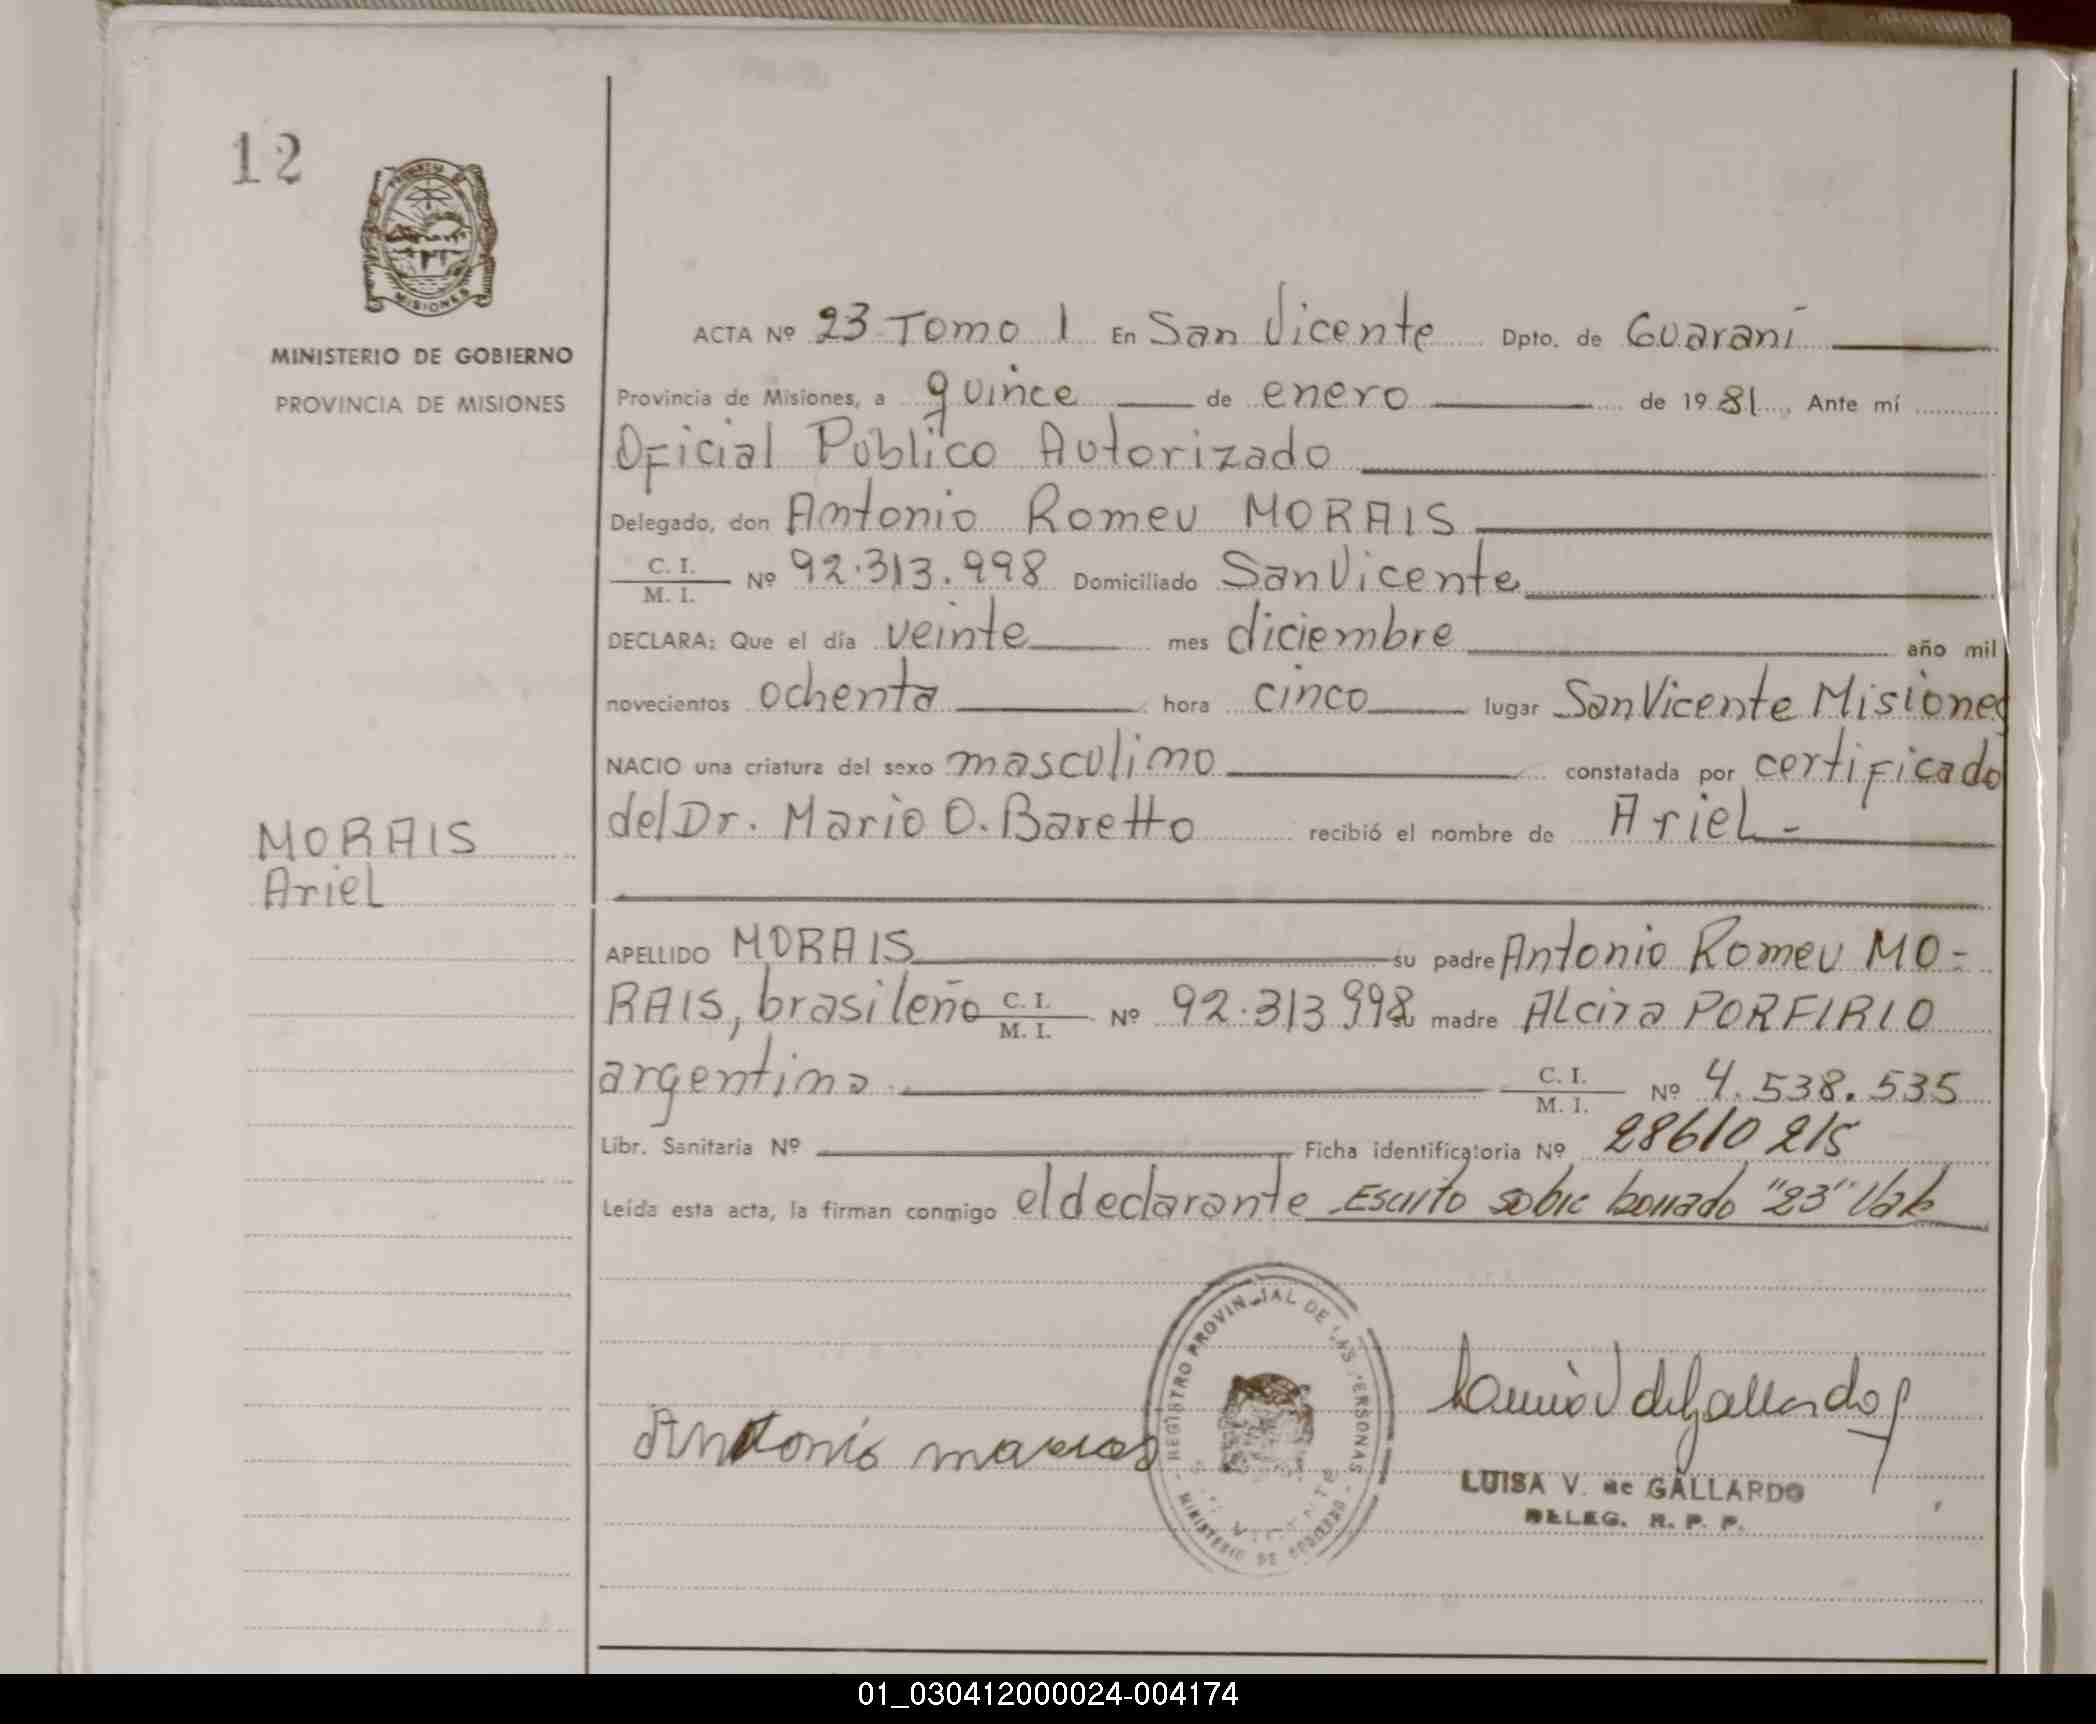 12
PROVINCIA DE
MISIONES
MINISTERIO DE GOBIERNO
PROVINCIA DE MISIONES
MORAIS
Ariel
ACTA Nº 23 Tomo 1 En San Vicente Dpto. de Guaraní
Provincia de Misiones, a quince de enero de 1981, Ante mí
Oficial Público Autorizado
Delegado, don Antonio Romeu MORAIS
C. I.
M. I. Nº 92.313.998 Domiciliado San Vicente
DECLARA: Que el día veinte mes diciembre año mil
novecientos ochenta hora cinco lugar San Vicente Misiones
NACIO una criatura del sexo masculino constatada por certificado
del Dr. Mario O. Baretto recibió el nombre de Ariel-
APELLIDO MORAIS su padre Antonio Romeu MO-
RAIS, brasileño C. I. M. I. Nº 92.313 998 su madre Alcira PORFIRIO
argentina C. I. M. I. Nº 4.538.535
Libr. Sanitaria Nº Ficha identificatoria Nº 28610215
Leída esta acta, la firman conmigo el declarante Escrito sobre borrado "23" Vale
REGISTRO PROVINCIAL DE LAS PERSONAS
MINISTERIO DE GOBIERNO
VICENTE
Antonio
de Gallardo
LUISA V. de GALLARDO
DELEG. R. P. P.
01_030412000024-004174